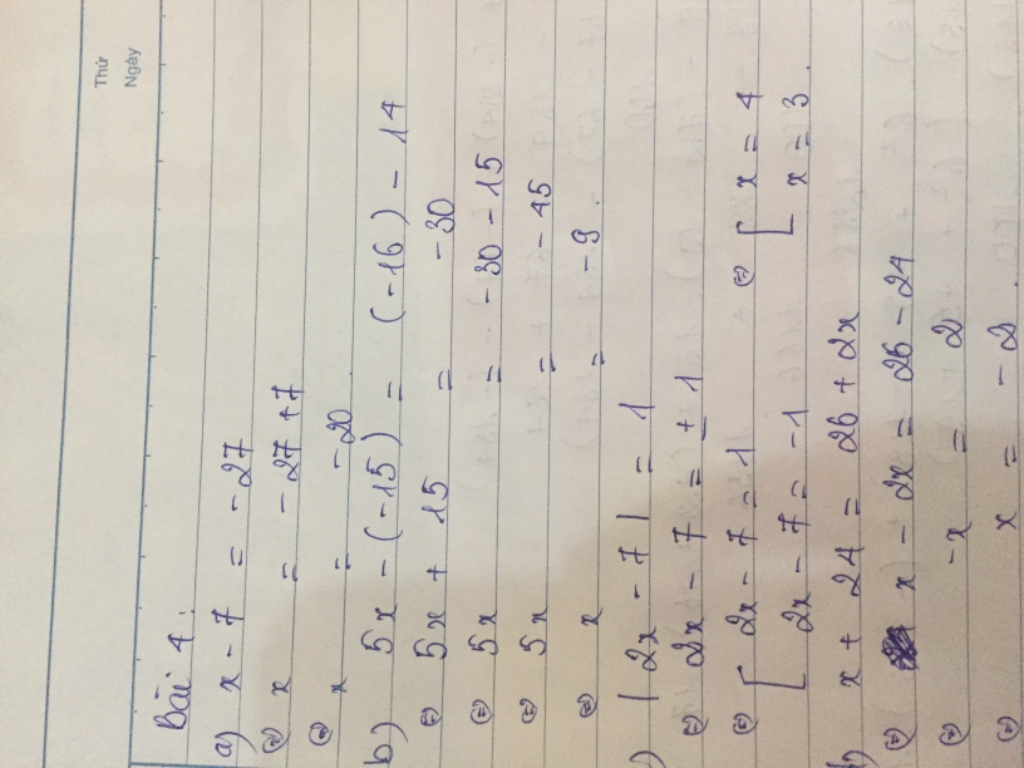 Thứ
Ngày
Bài 4:
a) x - 7 = - 27
⇔ x = - 27 + 7
⇔ x = - 20
b) 5x - (-15) = (-16) - 14
⇔ 5x + 15 = - 30
⇔ 5x = - 30 - 15
⇔ 5x = - 45
⇔ x = - 9
) | 2x - 7 | = 1
⇔ 2x - 7 = ± 1
⇔ [ 2x - 7 = 1 ⇔ [ x = 4
2x - 7 = -1 x = 3.
) x + 24 = 26 + 2x
⇔ x - 2x = 26 - 24
⇔ -x = 2
⇔ x = - 2.